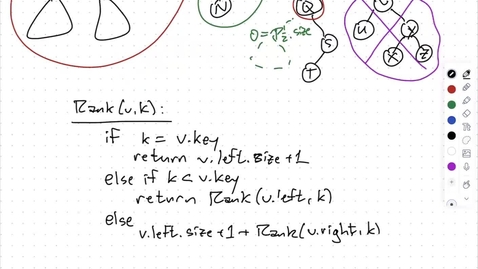 N
Q
0 = P½.size
S
T
U
Y
X
Z
Rank(v,k):
if k = v.key
return v.left.size+1
else if k < v.key
return Rank(v.left,k)
else
v.left.size+1 + Rank(v.right,k)